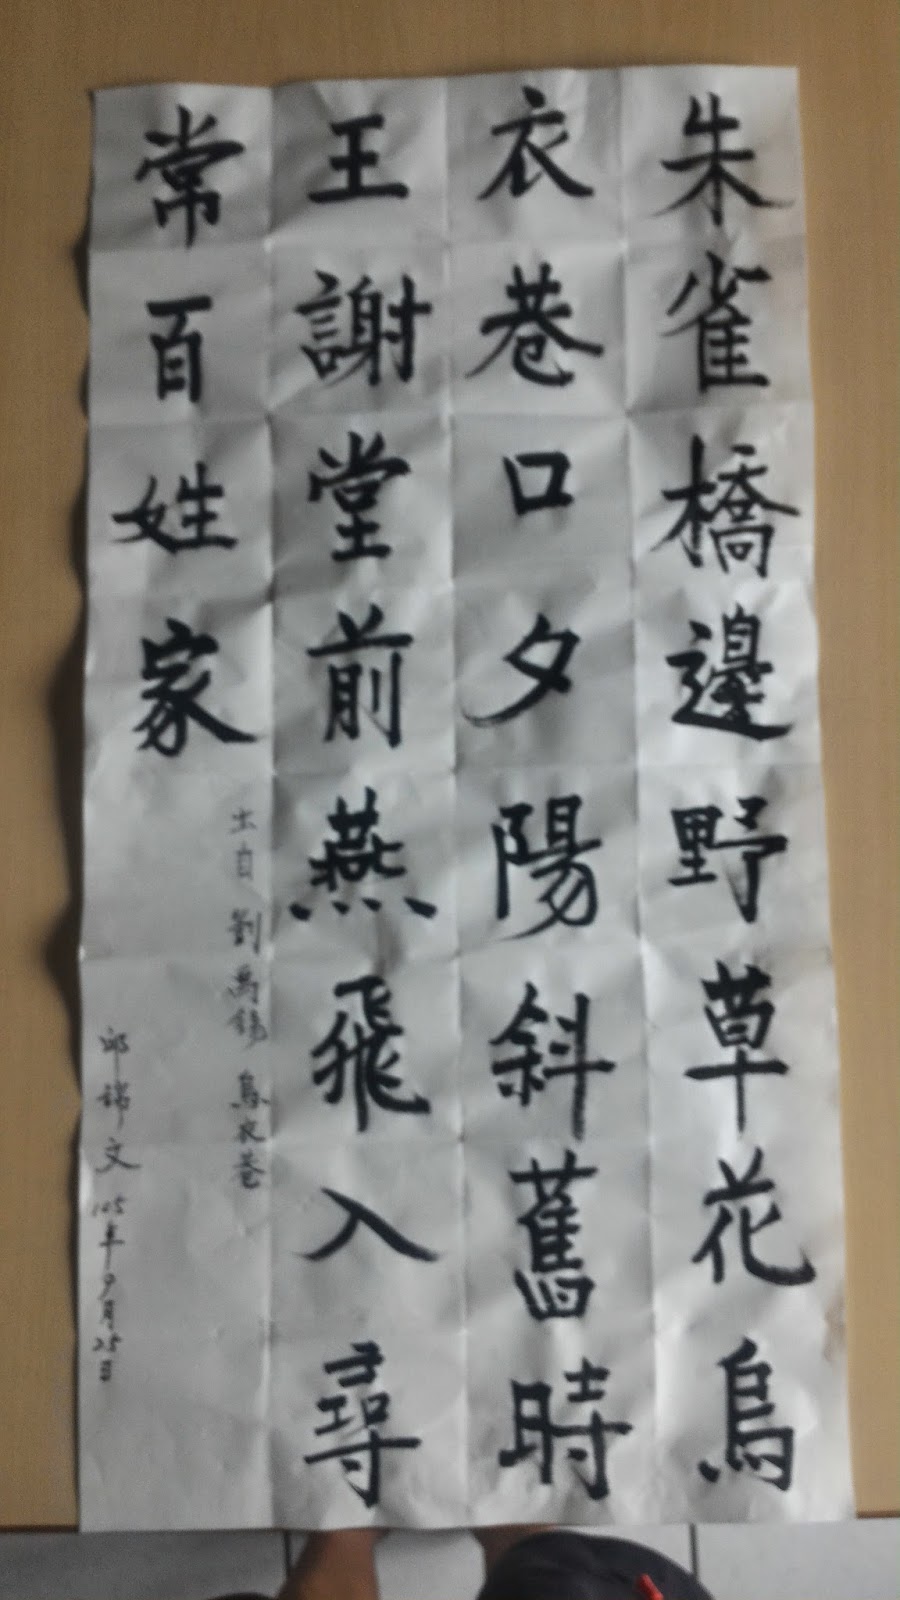 朱雀橋邊野草花烏
衣巷口夕陽斜舊時
王謝堂前燕飛入尋
常百姓家
出自 劉禹錫 烏衣巷
邱錦文 105年9月25日